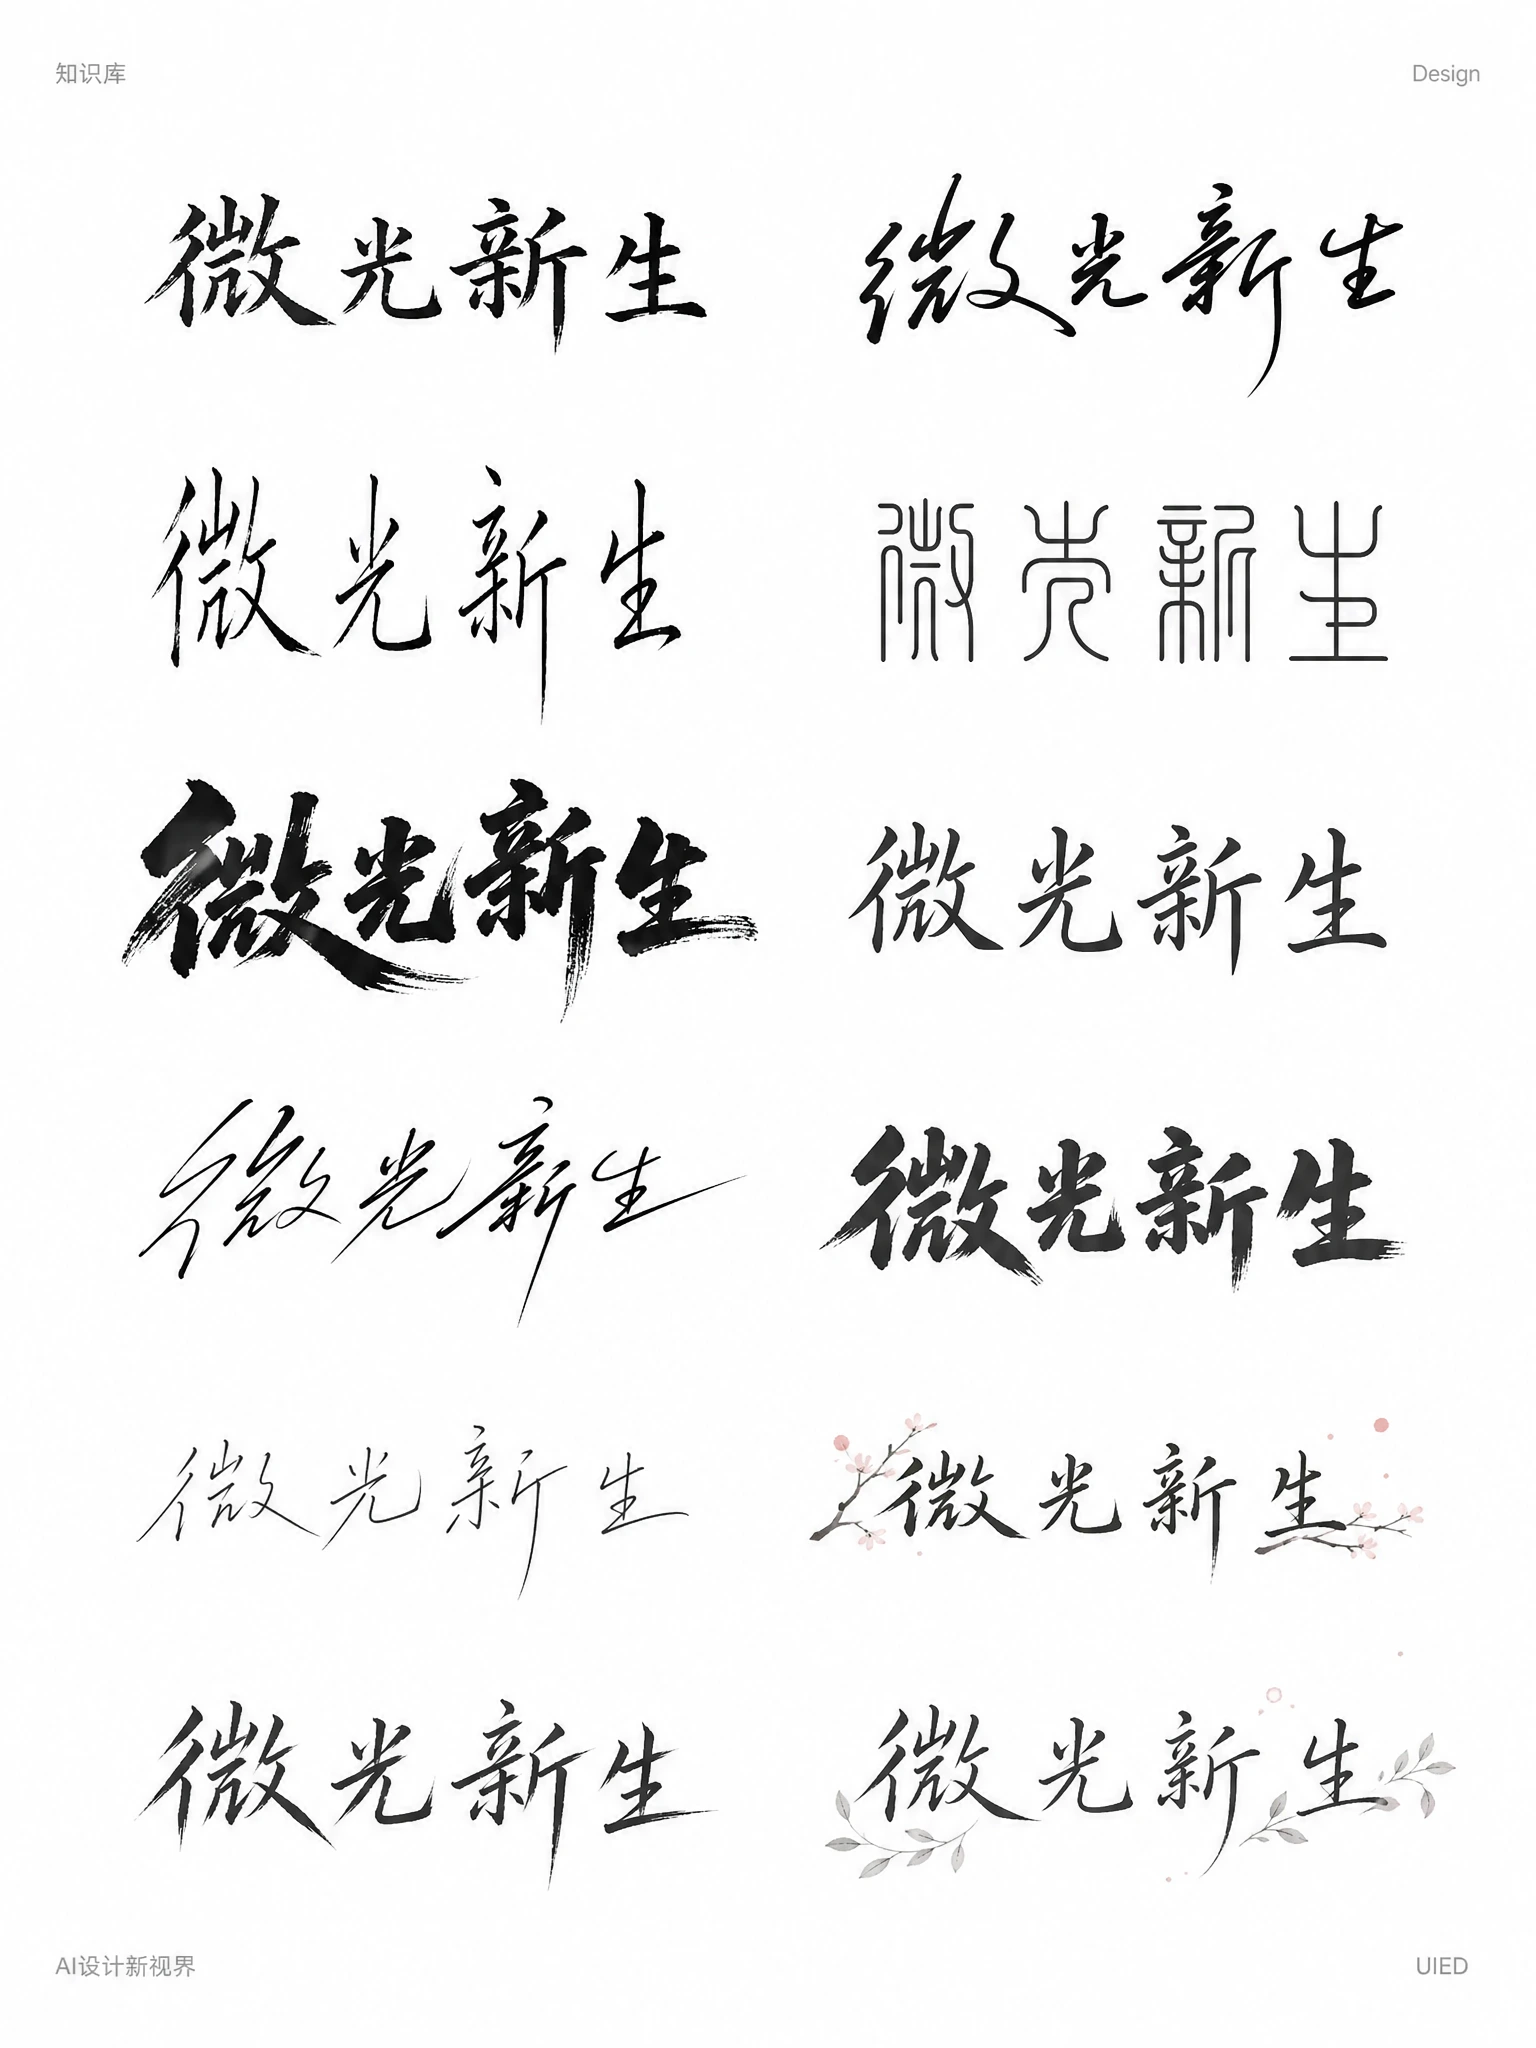 知识库 Design
微光新生 微光新生
微光新生 微光新生
微光新生 微光新生
微光新生 微光新生
微光新生 微光新生
微光新生 微光新生
AI设计新视界 UIED